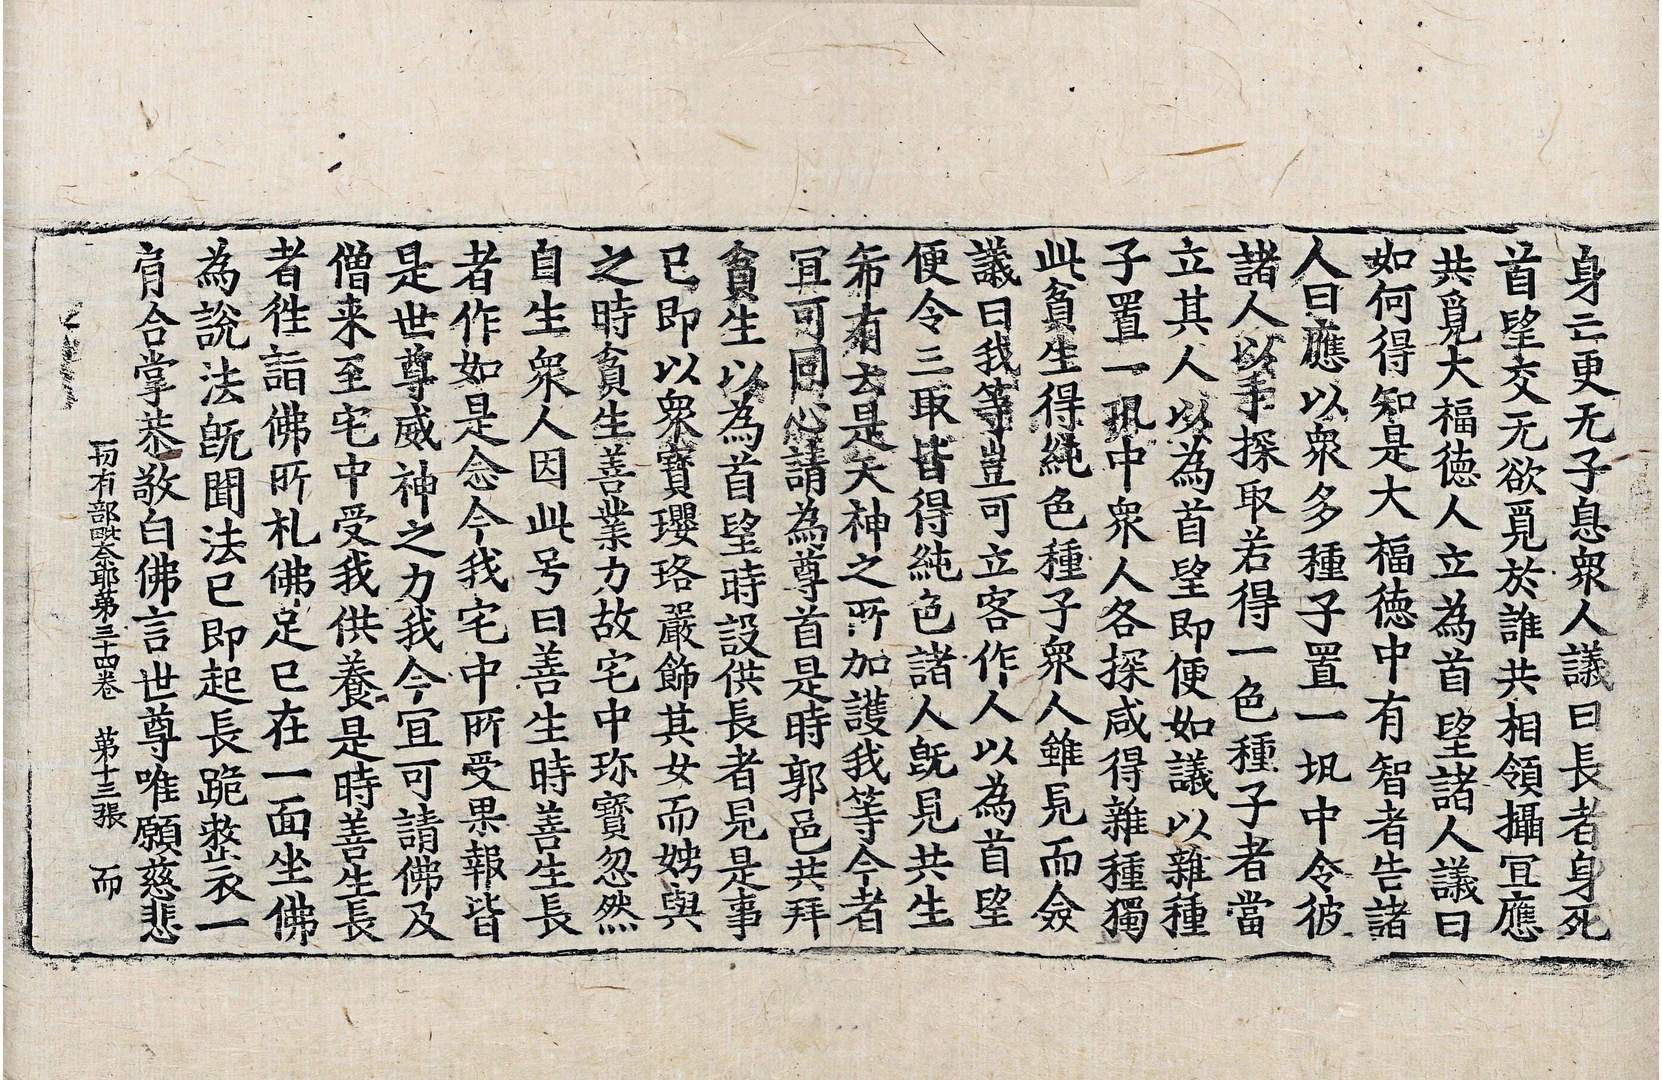 身亡更无子息衆人議曰長者身死
首望交无欲覓於誰共相領攝冝應
共覓大福德人立為首望諸人議曰
如何得知是大福德中有智者告諸
人曰應以衆多種子置一㼚中令彼
諸人以手探取若得一色種子者當
立其人以為首望即便如議以雜種
子置一㼚中衆人各探咸得雜種獨
此貧生得純色種子衆人雖見而僉
議曰我等豈可立客作人以為首望
便令三取皆得純色諸人旣見共生
希有大是天神之所加護我等今者
冝可同心請為尊首是時郭邑共拜
貧生以為首望時設供長者見是事
已即以衆寶瓔珞嚴飾其女而娉與
之時貧生善業力故宅中珎寶忽然
自生衆人因此号曰善生時善生長
者作如是念今我宅中所受果報皆
是世尊威神之力我今冝可請佛及
僧来至宅中受我供養是時善生長
者徃詣佛所札佛足已在一面坐佛
為說法旣聞法已即起長跪整衣一
肩合掌恭敬白佛言世尊唯願慈悲
有部毗奈耶第三十四卷 第十三張 而